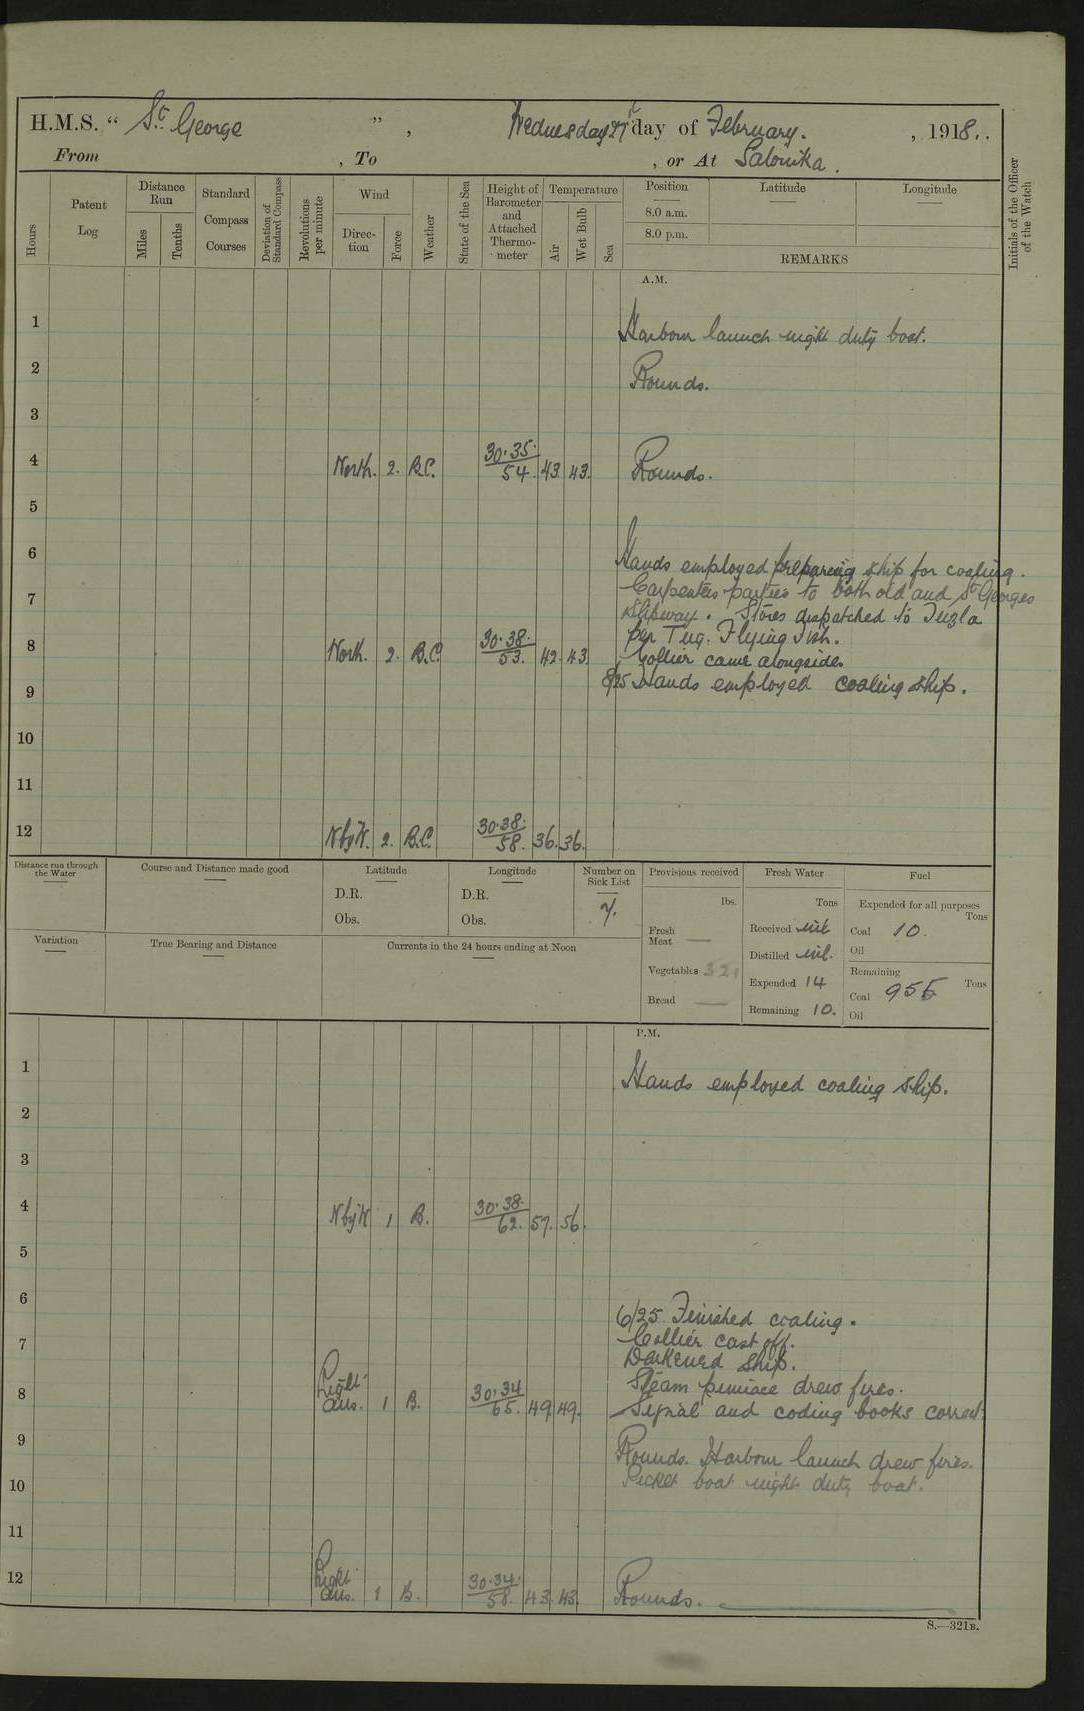 H.M.S. “ St George ” , Wednesday 27th day of February. , 1918..
From , To , or At Salonika.
Hours
Patent Log
Distance Run
Miles
Tenths
Standard Compass Courses
Deviation of Standard Compass
Revolutions per minute
Wind
Direc-tion
Force
Weather
State of the Sea
Height of Barometer and Attached Thermo-meter
Temperature
Air
Wet Bulb
Sea
Position
8.0 a.m.
8.0 p.m.
Latitude
Longitude
REMARKS
Initials of the Officer of the Watch
A.M.
1 Harbour launch night duty boat.
2 Rounds.
3
4 North. 2. B.C. 30.35. 54. 43. 43. Rounds.
5
6 Hands employed preparing ship for coaling.
Carpenters parties to both old and St Georges
7 Slipway. Stores dispatched to Tuzla
per Tug. Flying Fish.
8 North. 2. B.C. 30.38. 53. 42. 43. Collier came alongside.
8/25 Hands employed coaling ship.
9
10
11
12 N by W. 2. B.C. 30.38. 58. 36. 36.
Distance run through the Water
Course and Distance made good
Latitude
D.R.
Obs.
Longitude
D.R.
Obs.
Number on Sick List
7.
Provisions received
lbs.
Fresh Meat
Vegetables 321
Bread
Fresh Water
Tons
Received nil
Distilled nil.
Expended 14
Remaining 10.
Fuel
Expended for all purposes
Tons
Coal 10.
Oil
Remaining
Coal 955 Tons
Oil
Variation
True Bearing and Distance
Currents in the 24 hours ending at Noon
P.M.
1 Hands employed coaling ship.
2
3
4 N by W 1 B. 30.38. 62. 57. 56.
5
6
6/25 Finished coaling.
7 Collier cast off.
Darkened ship.
Steam pinnace drew fires.
8 Light airs. 1 B. 30.34 65. 49. 49. Signal and coding books correct.
9 Rounds. Harbour launch drew fires.
10 Picket boat night duty boat.
11
12 Light airs. 1 B. 30.34. 58. 43. 43. Rounds.
S.—321B.